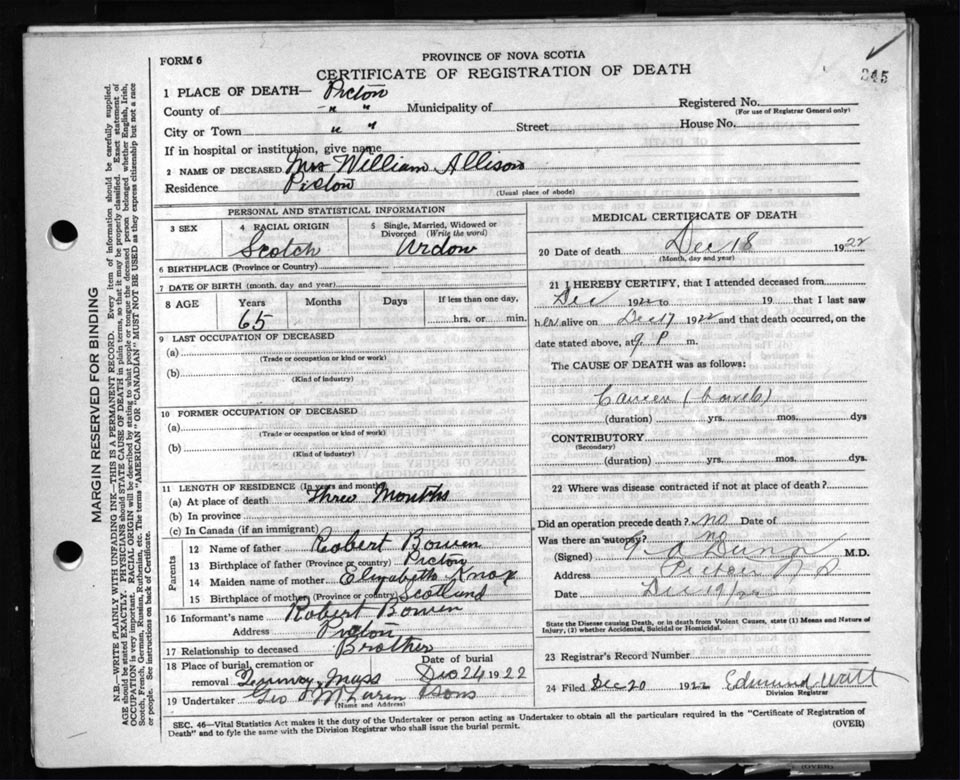 FORM 6
PROVINCE OF NOVA SCOTIA
CERTIFICATE OF REGISTRATION OF DEATH
245
1 PLACE OF DEATH— Pictou
County of " " Municipality of Registered No.
(For use of Registrar General only)
City or Town " " Street House No.
If in hospital or institution, give name
2 NAME OF DECEASED Mrs William Allison
Residence Pictou
(Usual place of abode)
PERSONAL AND STATISTICAL INFORMATION
3 SEX 4 RACIAL ORIGIN 5 Single, Married, Widowed or Divorced (Write the word)
Scotch Widow
6 BIRTHPLACE (Province or Country)
7 DATE OF BIRTH (month, day and year)
8 AGE Years Months Days If less than one day,
65 hrs. or min.
9 LAST OCCUPATION OF DECEASED
(a)
(Trade or occupation or kind or work)
(b)
(Kind of industry)
10 FORMER OCCUPATION OF DECEASED
(a)
(Trade or occupation or kind of work)
(b)
(Kind of industry)
11 LENGTH OF RESIDENCE (In years and months)
(a) At place of death Three Months
(b) In province
(c) In Canada (if an immigrant)
Parents
12 Name of father Robert Bowen
13 Birthplace of father (Province or country) Pictou
14 Maiden name of mother Elizabeth Knox
15 Birthplace of mother (Province or country) Scotland
16 Informant's name Robert Bowen
Address Pictou
17 Relationship to deceased Brother
18 Place of burial, cremation or Date of burial
removal Quincy, Mass Dec 24 1922
19 Undertaker Geo McLaren Sons
(Name and Address)
MEDICAL CERTIFICATE OF DEATH
20 Date of death Dec 18 1922
(Month, day and year)
21 I HEREBY CERTIFY, that I attended deceased from
Dec 1922 to 19 that I last saw
her alive on Dec 17 1922 and that death occurred, on the
date stated above, at 9 P m.
The CAUSE OF DEATH was as follows:
Cancer (bowels)
(duration) yrs. mos. dys
CONTRIBUTORY
(Secondary)
(duration) yrs. mos. dys.
22 Where was disease contracted if not at place of death?
Did an operation precede death? no Date of
Was there an autopsy? no
(Signed) G A Dunn M.D.
Address Pictou N S
Date Dec 19/22
State the Disease causing Death, or in death from Violent Causes, state (1) Means and Nature of
Injury, (2) whether Accidental, Suicidal or Homicidal.
23 Registrar's Record Number
24 Filed Dec 20 1922 Edmund Watt
Division Registrar
SEC. 46—Vital Statistics Act makes it the duty of the Undertaker or person acting as Undertaker to obtain all the particulars required in the "Certificate of Registration of
Death" and to fyle the same with the Division Registrar who shall issue the burial permit. (OVER)
MARGIN RESERVED FOR BINDING
N.B.—WRITE PLAINLY WITH UNFADING INK—THIS IS A PERMANENT RECORD. Every item of information should be carefully supplied.
AGE should be stated EXACTLY. PHYSICIANS should STATE CAUSE OF DEATH in plain terms, so that it may be properly classified. Exact statement of
OCCUPATION is very important. RACIAL ORIGIN will be described by stating to what people or tongue the deceased person belonged whether English, Irish,
Scotch, French, German, Russian, Ruthenian, etc. The terms "AMERICAN" OR "CANADIAN" MUST NOT BE USED as they express citizenship but not a race
or people. See instructions on back of Certificate.